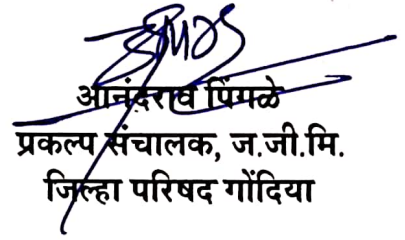 आनंदराव पिंगळे
प्रकल्प संचालक, ज.जी.मि.
जिल्हा परिषद गोंदिया